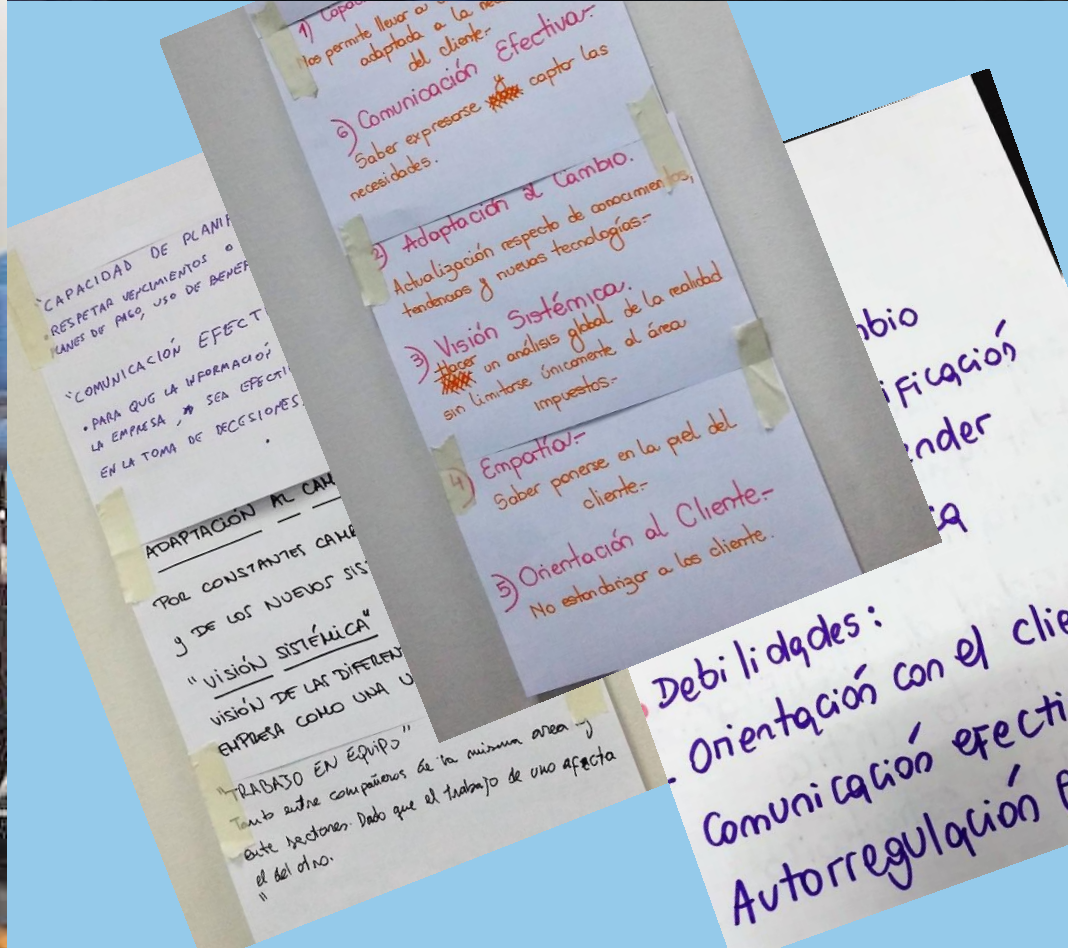 "CAPACIDAD DE PLANIF
. RESPETAR VENCIMIENTOS o
PLANES DE PAGO, USO DE BENEF
"COMUNICACIÓN EFECT
. PARA QUE LA INFORMACIÓN
LA EMPRESA, SEA EFECTI
EN LA TOMA DE DECESIONES.
ADAPTACIÓN AL CAM
POR CONSTANTES CAMB
y DE LOS NUEVOS SIS
"VISIÓN SISTÉMICA"
VISIÓN DE LAS DIFEREN
EMPRESA COMO UNA U
"TRABAJO EN EQUIPO"
Tanto entre compañeros de la misma area y
ente sectores. Dado que el trabajo de uno afecta
el del otro.
"
1) Capac
Nos permite llevar a
adaptada a la ne
del cliente.-
6) Comunicación Efectiva.-
Saber expresarse y captar las
necesidades.
2) Adaptación al Cambio.
Actualización respecto de conocimientos,
tendencias y nuevas tecnologías.-
3) Visión Sistémica.
Hacer un análisis global de la realidad
sin limitarse únicamente al área
impuestos.-
4) Empatía.-
Saber ponerse en la piel del
cliente.-
5) Orientación al Cliente.-
No estandarizar a los cliente.
mbio
ificación
ender
ia
Debilidades:
- Orientación con el clie
Comunicación efecti
Autorregulación